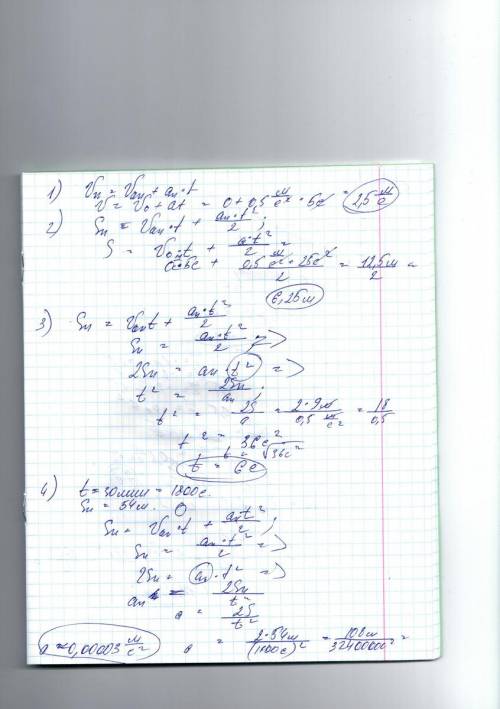 1) Vx = V₀x + ax·t
V = V₀ + at = 0 + 0,5 м/с² · 5с = 2,5 м/с
2) Sx = V₀x·t + ax·t²/2 ;
S = V₀·t + a·t²/2 =
0·5с + 0,5 м/с² · 25с²/2 = 12,5м/2 =
6,25м
3) Sx = V₀xt + ax·t²/2
Sx = ax·t²/2 =>
2Sx = ax·t² =>
t² = 2Sx/ax ;
t² = 2S/a = 2·9м/0,5 м/с² = 18/0,5
t² = 36с²
t = √36с²
t = 6с
4) t = 30мин = 1800с.
Sx = 54м. 0
Sx = V₀x·t + axt²/2 ;
Sx = ax·t²/2 =>
2Sx = ax·t² =>
ax = 2Sx/t²
a = 2S/t²
a = 2·54м/(1800с)² = 108м/3240000с² =
a ≈ 0,00003 м/с²